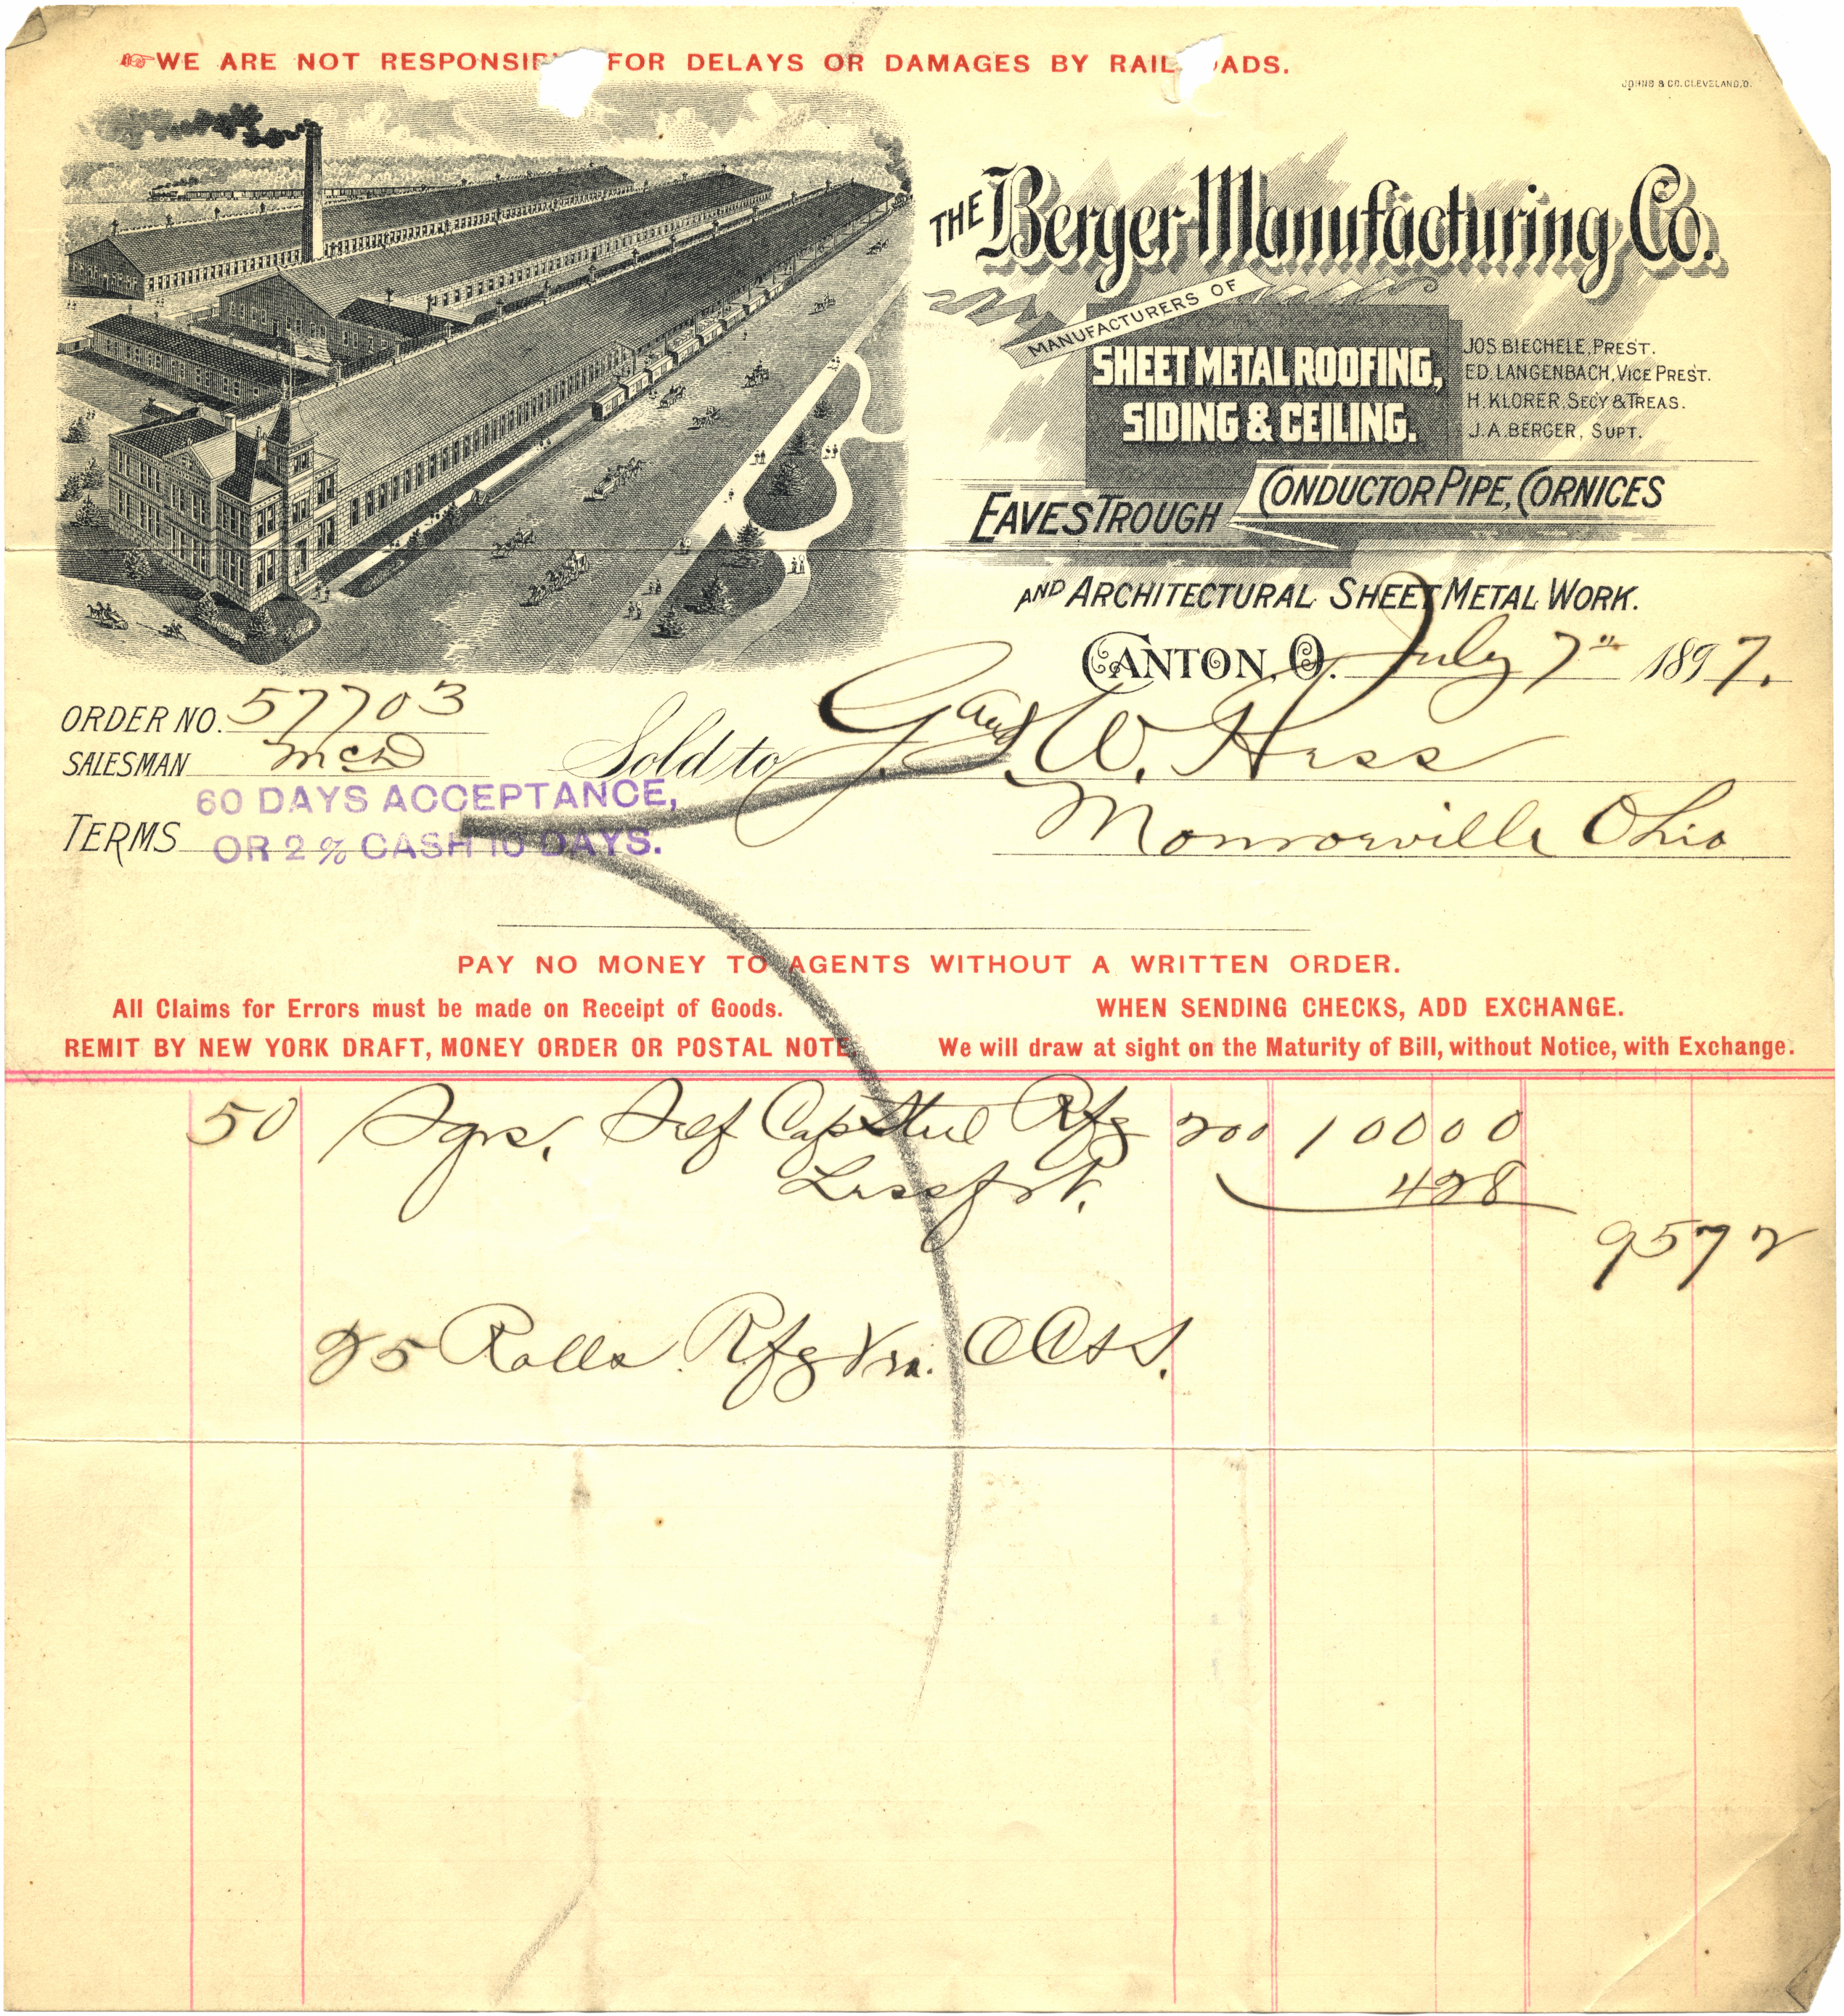 WE ARE NOT RESPONSIB FOR DELAYS OR DAMAGES BY RAIL ADS.
JOHNS & CO. CLEVELAND, O.
THE Berger Manufacturing Co.
MANUFACTURERS OF
SHEET METAL ROOFING,
SIDING & CEILING.
JOS. BIECHELE, PREST.
ED. LANGENBACH, VICE PREST.
H. KLORER, SECY & TREAS.
J. A. BERGER, SUPT.
EAVES TROUGH CONDUCTOR PIPE, CORNICES
AND ARCHITECTURAL SHEET METAL WORK.
CANTON, O. July 7th 1897.
ORDER NO. 57703
SALESMAN McD
Sold to G. and W. Hess
Monroeville Ohio
TERMS 60 DAYS ACCEPTANCE,
OR 2 % CASH 10 DAYS.
PAY NO MONEY TO AGENTS WITHOUT A WRITTEN ORDER.
All Claims for Errors must be made on Receipt of Goods.
WHEN SENDING CHECKS, ADD EXCHANGE.
REMIT BY NEW YORK DRAFT, MONEY ORDER OR POSTAL NOTE.
We will draw at sight on the Maturity of Bill, without Notice, with Exchange.
50 Sqrs. Self Cap Steel Rfg 200 10000
Less frt. 428
9572
25 Rolls Rfg